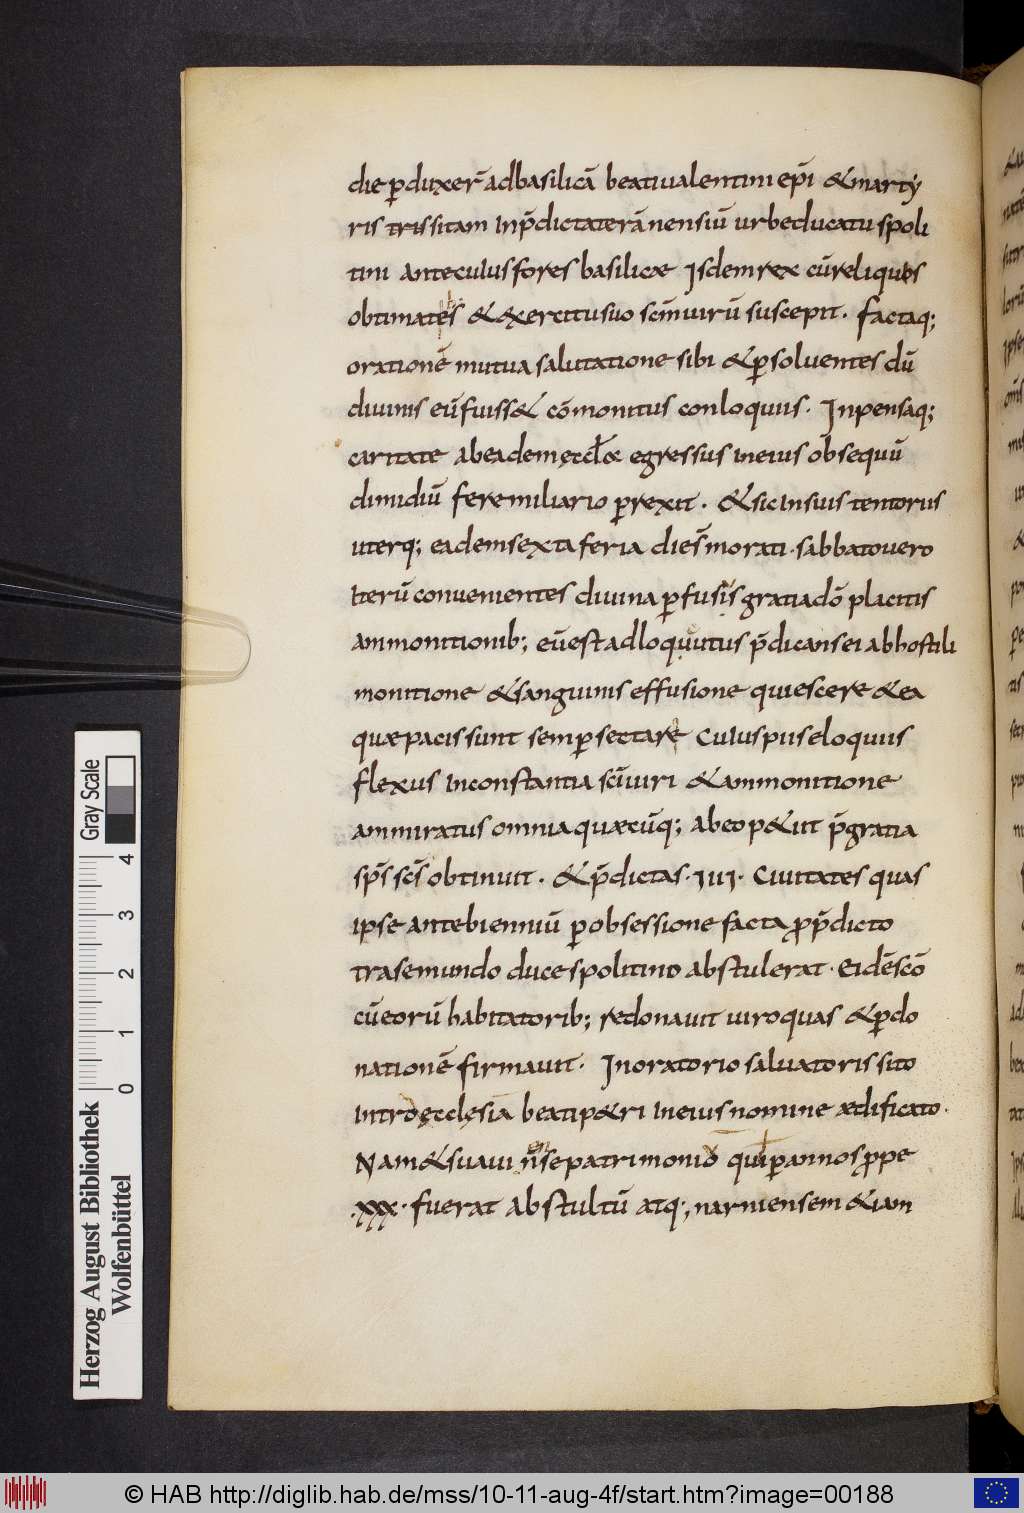 die ꝑduxer̄ adbasilicā beatiualentini ep̄i &marty
ris trissitam Inp̄dictaterānensiū urbeducatuspoli
tini anteculusfores basilicæ Isdemrex cūreliquos
obtimates & exercitusuo sc̄muirū suscepit. Factaq;
orationē mutuasalutatione sibi &ꝑsoluentes dū
diuinis eūfuiss& cōmonitus conloquiis. Inpensaq;
caritate abeademęccl̄æ egressus Ineius obsequiū
dimidiū feremiliario ꝑrexit. &sicInsuis tentoriis
uterq; eademsexta feria diēs morati. sabbatouero
Iterū conuenientes diuinaꝑfusis gratiadō placitis
ammonitionib; eūestadloquutus p̄dicansei abhostili
monitione &sanguinis effusione quiescere &ea
quæpacissunt semꝑsectare Cuiuspiiseloquiis
flexus Inconstantia sc̄iuiri &ammonitione
ammiratus omnia quæcūq; abeop&iit p̄gratia
sp̄s sc̄s obtinuit. &p̄dictas. IUI. Ciuitates quas
ipse antebienniū ꝑobsessione facta ꝓp̄dicto
trasemundo ducespolitino abstulerat. Eidēscō
cūeorū habitatorib; redonauit uiroquas &ꝑdo
nationē firmauit. Inoratorio saluatorissito
Introęcclęsia beatip&ri Ineiusnomine ædificato.
Nam&suaui n̄sepatrimoniō quiꝑannosꝓpe
.xxx. fuerat abstultū atq;, narniensem &iam
Gray Scale
4
3
2
1
0
Herzog August Bibliothek
Wolfenbüttel
© HAB http://diglib.hab.de/mss/10-11-aug-4f/start.htm?image=00188